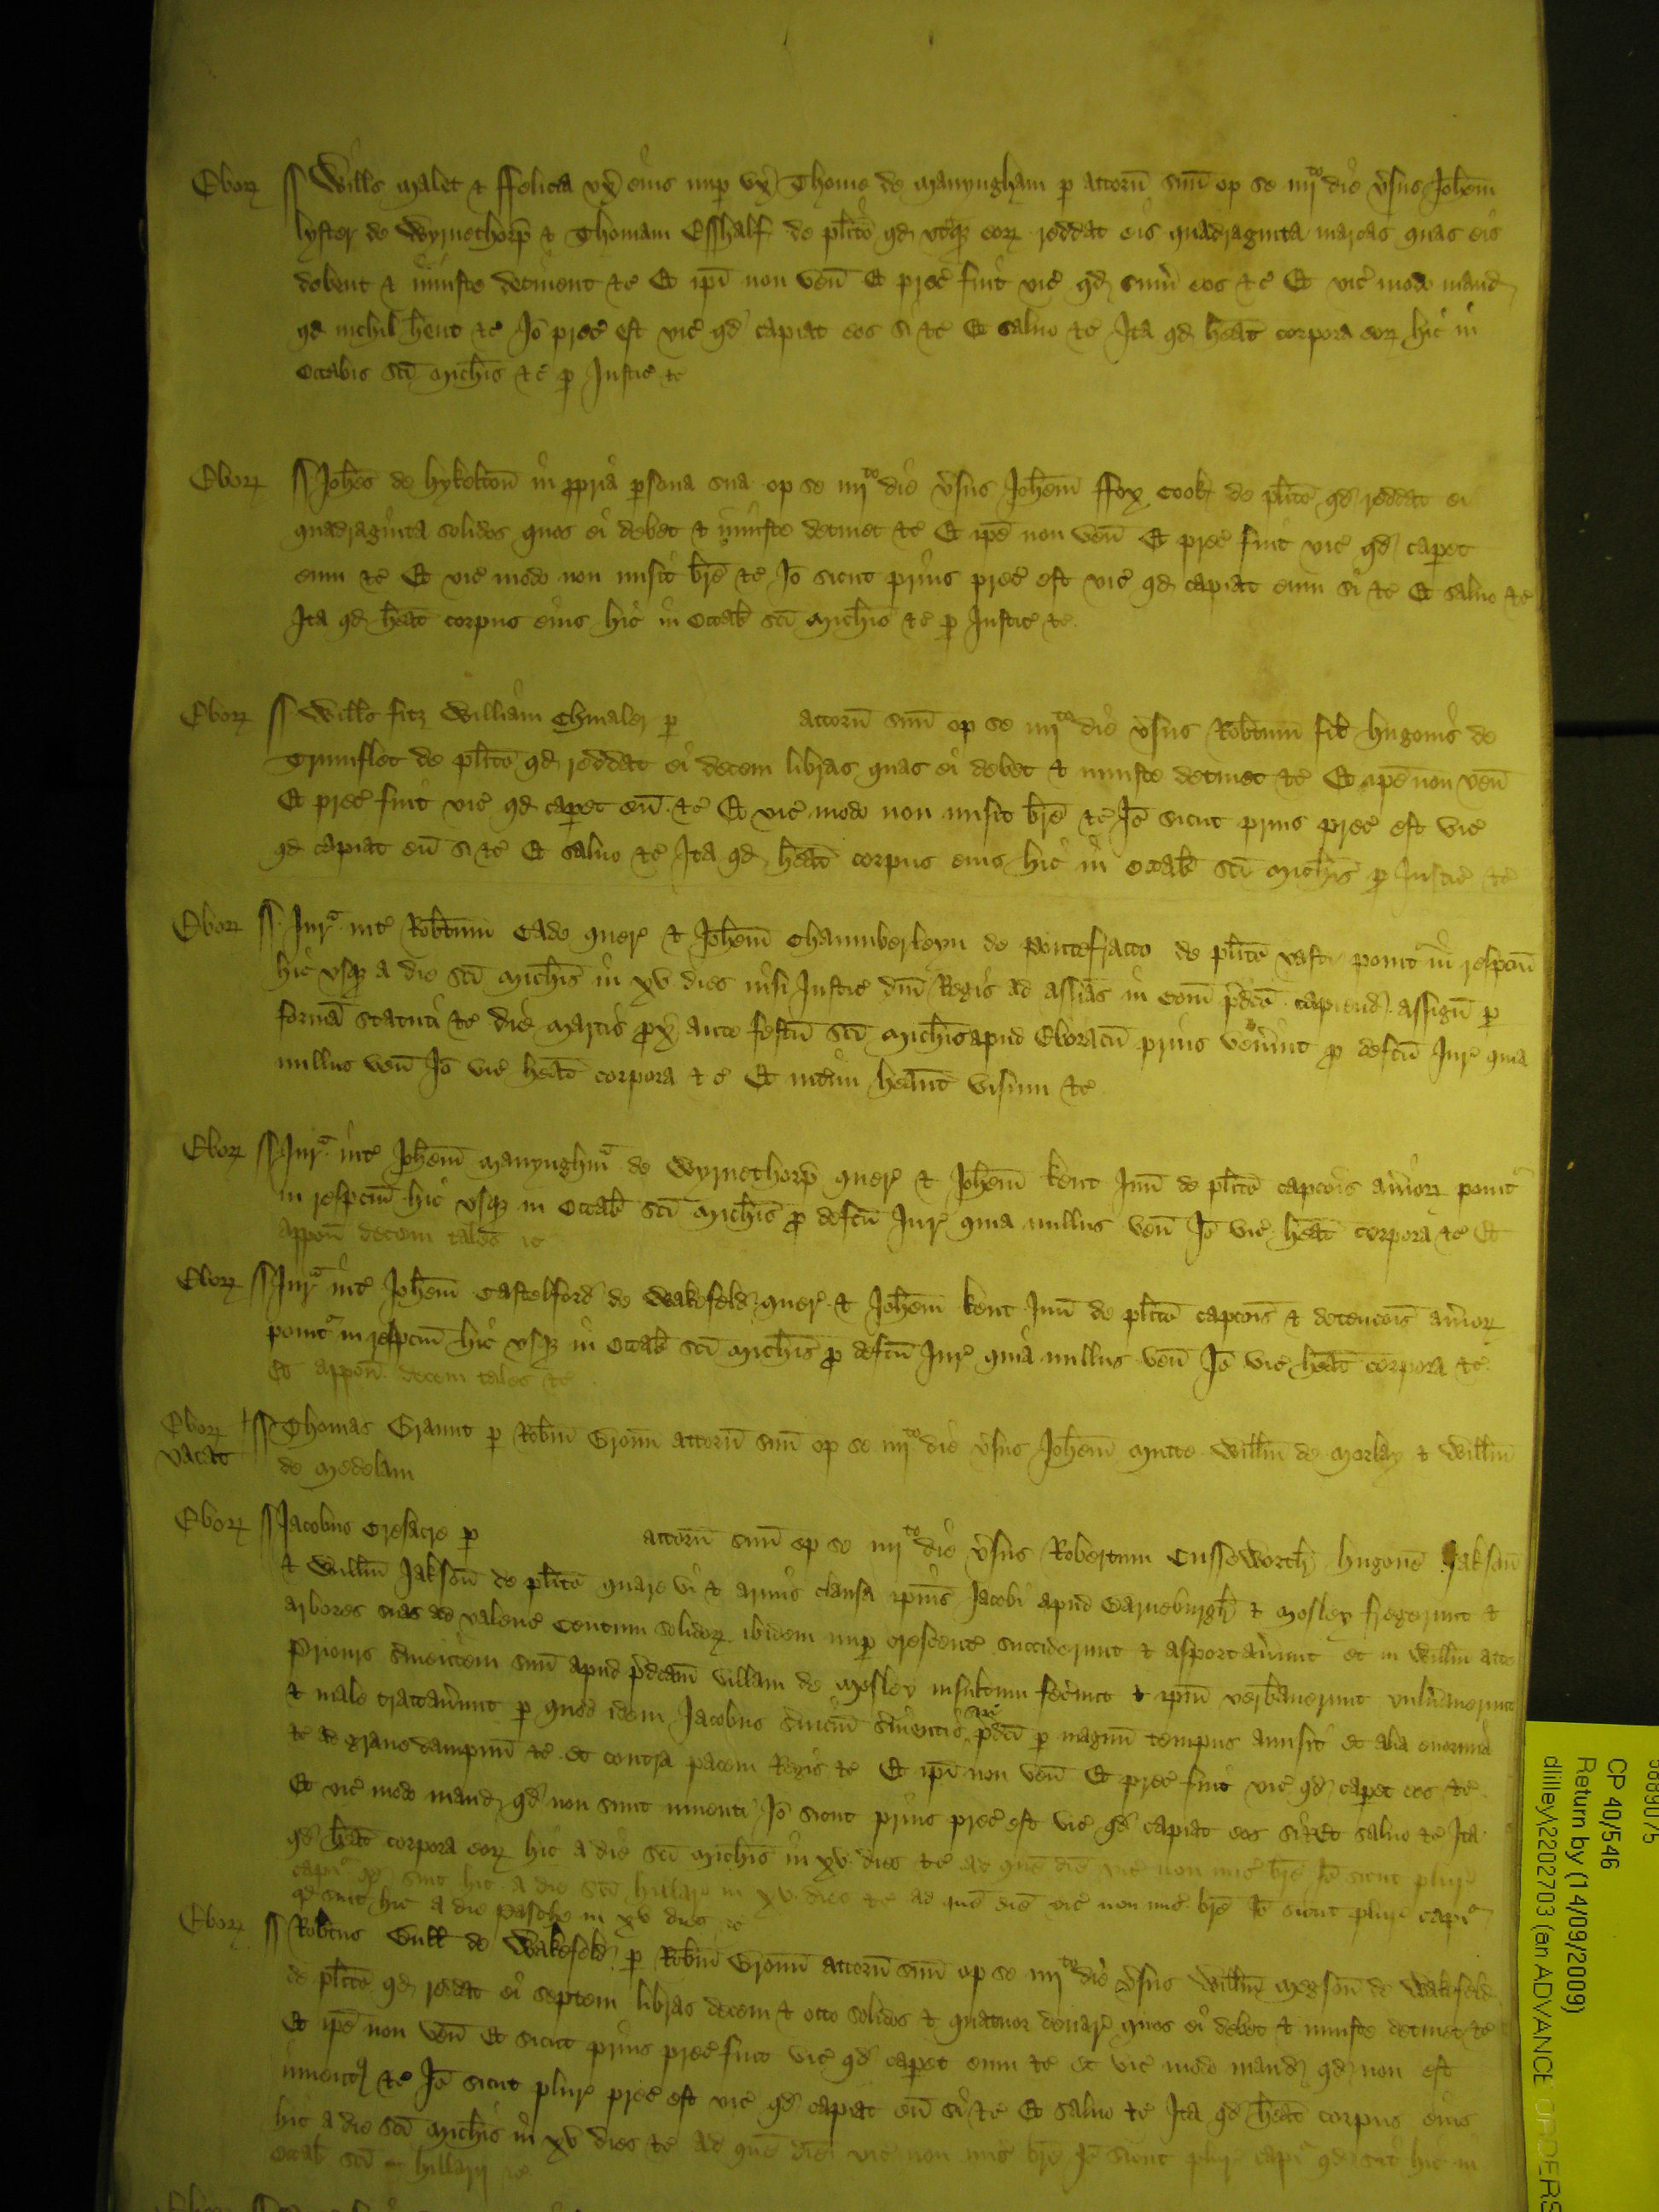 Eborꝝ Wills Malet & ffelicia vx eius nup vx Thome de Manyngham p attorn suu op se iiijto die vsus Johem
lyster de Wyrnethorp & Thomam Esshalf de plito qd vtqz eorꝝ reddat eis quadraginta marcas quas eis
debent & iniuste detinent &c Et ipi non ven Et prec fuit vic qd sum eos &c Et vic modo mand
qd nichil hent &c Io prec est vic qd capiat eos si &c Et saluo &c Ita qd heat corpora eorꝝ hic in
Octabis sci Michis &c p Justic &c
Eborꝝ Johes de hykelton in ppria psona sua op se iiijto die vsus Johem ffox Cook de plito qd reddat ei
quadraginta solidos quos ei debet & iniuste detinet &c Et ipe non ven Et prec fuit vic qd capet
eum &c Et vic modo non misit bre &c Io sicut prius prec est vic qd capiat eum si &c Et saluo &c
Ita qd heat corpus eius hic in Octab sci Michis &c p Justic &c
Eborꝝ Wills fitz William Chiualer p attorn suu op se iiijto die vsus Robtum fil hugonis de
Trumflet de plito qd reddat ei decem libras quas ei debet & iniuste detinet &c Et ipe non ven
Et prec fuit vic qd capet eu &c Et vic modo non misit bre &c Io sicut prius prec est vic
qd capiat eu si &c Et saluo &c Ita qd heat corpus eius hic in Octab sci Michis p Justic &c
Eborꝝ Jura int Robtum Cade quer & Johem Chaumberleyn de Pontefracto de plito vasti ponit in respcm
hic vsqz a die sci Michis in xv dies nisi Justic dni Regis ad assias in Com pdco capiend assign p
forma statuti &c die martis px ante festu sci Michis apud Eboracu prius venint p defcu Jur quia
nullus ven Io vic heat corpora &c Et intim heant visum &c
Eborꝝ Jura int Johem Manynghm de Wyrnethorp quer & Johem kent Jun de plito capcois aviorꝝ ponit
in respcm hic vsqz in Octab sci Michis p defcu Jur quia nullus ven Io vic heat corpora &c Et
appon decem tales &c
Eborꝝ Jura int Johem Castelford de Wakefeld quer & Johem kent Jun de plito capcois & detencois aviorꝝ
ponit in respcm hic vsqz in Octab sci Michis p defcu Jur quia nullus ven Io vic heat corpora &c
Et appon decem tales &c
Eborꝝ Thomas Graunt p Robm Gronn attorn suu op se iiijto die vsus Johem Mutte Willm de Morlay & Willm
vacat de Medelam
Eborꝝ Jacobus Cresacre p attorn suu op se iiijto die vsus Robertum Cusseworth hugone Jakson
& Willm Jakson de plito quare vi & armis clausa ipius Jacobi apud Barneburgh & Mosley fregerunt &
arbores suas ad valenc Centum solidorꝝ ibidem nup crescente succiderunt & asportaverunt et in Willm atte
Priours svientem suu apud pdcam villam de Mosley insultum fecunt & ipm verbaverunt vulnaverunt
& male tractaverunt p quod idem Jacobus sviciu svientis sui pdci p magnu tempus amisit et alia enormia
&c ad graue dampnu &c et contra pacem Regis &c Et ipi non ven Et prec fuit vic qd capet eos &c
Et vic modo mand qd non sunt inuenti Io sicut prius prec est vic qd capiat eos si &c Et saluo &c Ita
qd heat corpora eorꝝ hic a die sci Michis in xv dies &c ad que die vic non mis bre Io sicut plur
capi qd sint hic a die sci hillar in xv dies &c ad que die vic non mis bre Io sicut plur capi
qd sint hic a die Pasche in xv dies &c
Eborꝝ Robtus Gull de Wakefeld p Robm Gronn attorn suu op se iiijto die vsus Willm Megson de Wakefeld
de plito qd reddat ei septem libras decem & octo solidos & quatuor denar quos ei debet & iniuste detinet &c
Et ipe non ven Et sicut prius prec fuit vic qd capet eum &c et vic modo mand qd non est
inuentꝰ &c Io sicut plur prec est vic qd capiat eu si &c Et saluo &c Ita qd heat corpus eius
hic a die sci Michis in xv dies &c ad que die vic non mis bre Io sicut plur capi qd sit hic in
Octab sci hillarij &c
CP 40/546
Return by (14/09/2009)
dlilley\2202703 (en ADVANCE ORDERS